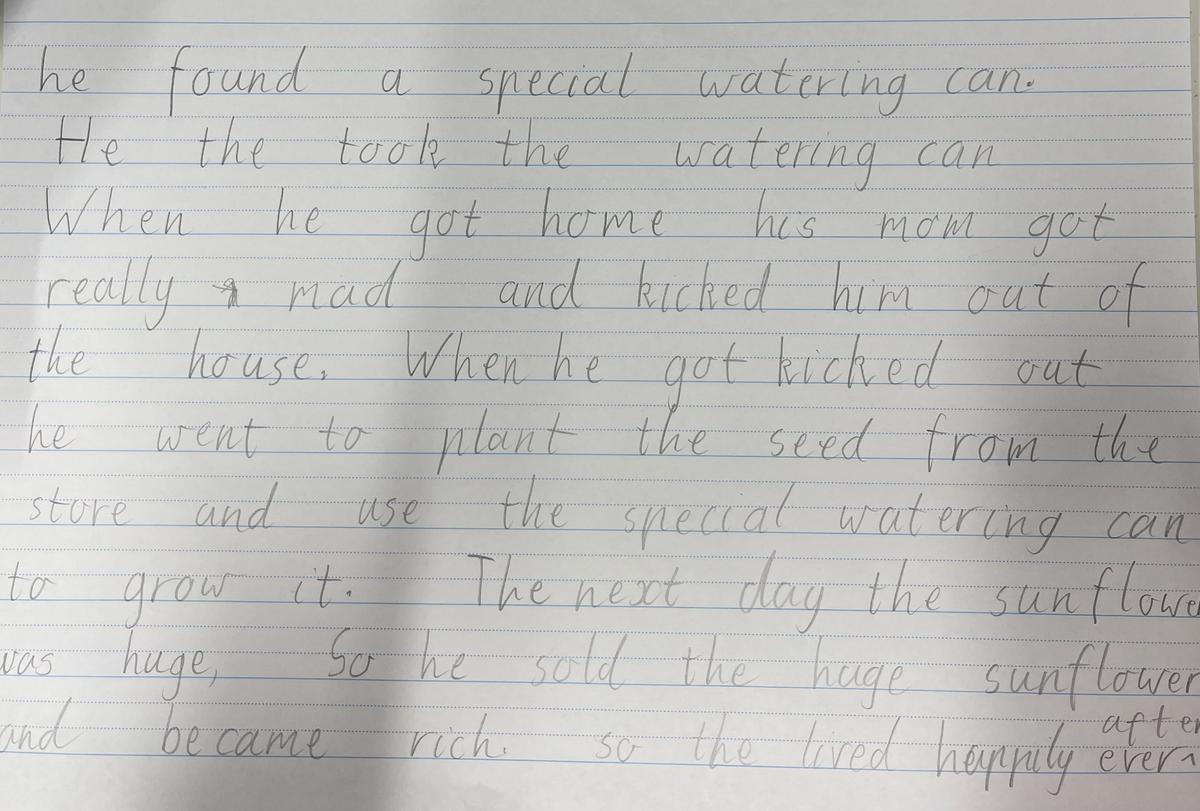 he found a special watering can.
He the took the watering can
When he got home his mom got
really mad and kicked him out of
the house. When he got kicked out
he went to plant the seed from the
store and use the special watering can
to grow it. The next day the sunflowe
was huge, So he sold the huge sunflower
and became rich. so the lived happily ever after